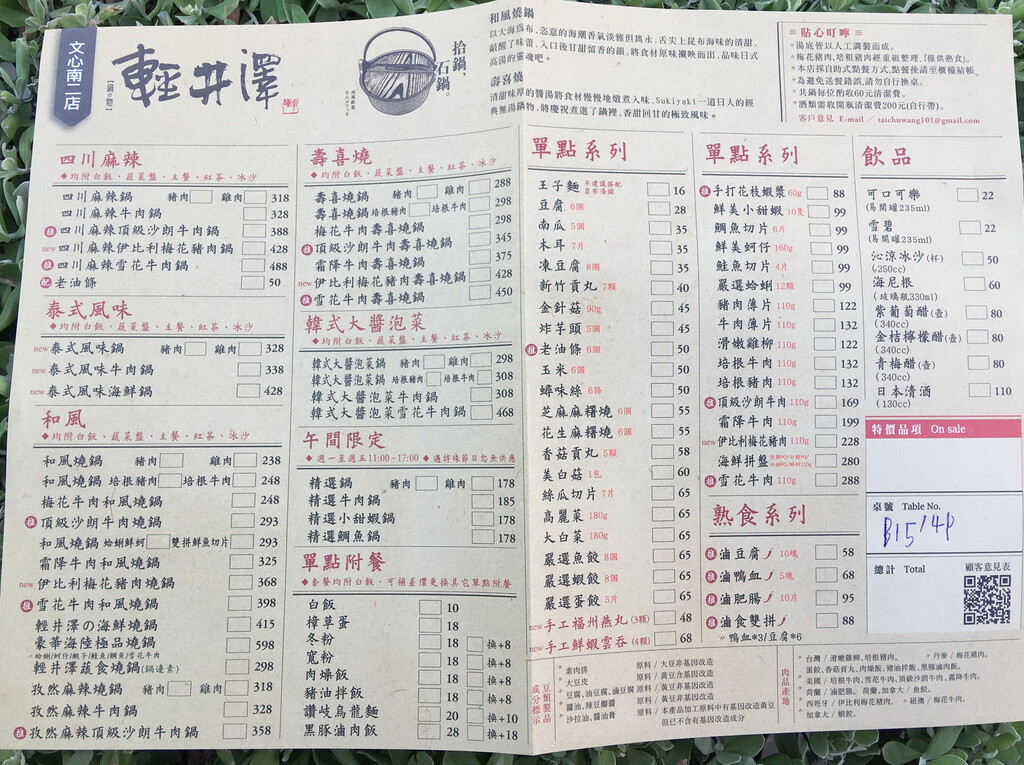 文心南二店
輕井澤
【鍋の物】
拾鍋,
石鍋。
和風燒鍋
以大海爲布,恣意的海潮香氣淡雅但雋永,舌尖上昆布海味的清甜,
敲醒了味蕾,入口後甘甜留香的鍋,將食材原味襯映而出,品味日式
高湯的靈魂吧。
壽喜燒
清甜味厚的醬湯將食材慢慢地燉煮入味,Sukiyaki一道日入的經
典無湯鍋物,將慶祝煮進了鍋裡,香甜回甘的極致風味。
貼心叮嚀
湯底皆以人工調製而成。
梅花豬肉、培根豬肉經重組整理,【僅供熟食】。
本店採自助式點餐方式,點餐後請至櫃檯結帳。
為避免送餐錯誤,請勿自行換桌。
共鍋每位酌收60元清潔費。
酒類需收開瓶清潔費200元(自行帶)。
客戶意見 E-mail / taichuwang101@gmail.com
四川麻辣
◆均附白飯、蔬菜盤、主餐、紅茶、冰沙
四川麻辣鍋 豬肉 雞肉 318
四川麻辣牛肉鍋 328
推 四川麻辣頂級沙朗牛肉鍋 388
new 四川麻辣伊比利梅花豬肉鍋 428
推 四川麻辣雪花牛肉鍋 488
配 老油條 50
泰式風味
◆均附白飯、蔬菜盤、主餐、紅茶、冰沙
new 泰式風味鍋 豬肉 雞肉 328
new 泰式風味牛肉鍋 338
new 泰式風味海鮮鍋 428
和風
◆均附白飯、蔬菜盤、主餐、紅茶、冰沙
和風燒鍋 豬肉 雞肉 238
和風燒鍋 培根豬肉 培根牛肉 248
梅花牛肉和風燒鍋 248
推 頂級沙朗牛肉燒鍋 293
和風燒鍋 蛤蜊鮮蚵 雙拼鮮魚切片 293
霜降牛肉和風燒鍋 325
new 伊比利梅花豬肉燒鍋 368
推 雪花牛肉和風燒鍋 398
輕井澤の海鮮燒鍋 415
豪華海陸極品燒鍋 598
輕井澤蔬食燒鍋(鍋邊素) 298
孜然麻辣燒鍋 豬肉 雞肉 318
孜然麻辣牛肉鍋 328
推 孜然麻辣頂級沙朗牛肉鍋 358
壽喜燒
◆均附白飯、蔬菜盤、主餐、紅茶、冰沙
壽喜燒鍋 豬肉 雞肉 288
壽喜燒鍋 培根豬肉 培根牛肉 298
梅花牛肉壽喜燒鍋 298
推 頂級沙朗牛肉壽喜燒鍋 345
霜降牛肉壽喜燒鍋 375
new 伊比利梅花豬肉壽喜燒鍋 428
推 雪花牛肉壽喜燒鍋 450
韓式大醬泡菜
◆均附白飯、蔬菜盤、主餐、紅茶、冰沙
韓式大醬泡菜鍋 豬肉 雞肉 298
韓式大醬泡菜鍋 培根豬肉 培根牛肉 308
韓式大醬泡菜牛肉鍋 308
韓式大醬泡菜雪花牛肉鍋 468
午間限定
◆週一至週五11:00~17:00 ◆適特殊節日恕無供應
精選鍋 豬肉 雞肉 178
精選牛肉鍋 185
精選小甜蝦鍋 178
精選鯛魚鍋 178
單點附餐
◆套餐均附白飯,可補差價更換其它單點附餐
白飯 10
樟草蛋 18
冬粉 18 換+8
寬粉 18 換+8
肉燥飯 18 換+8
豬油拌飯 18 換+8
讚岐烏龍麵 20 換+10
黑豚滷肉飯 28 換+18
單點系列
王子麵 不建議搭配昆布湯頭 16
豆腐 6個 28
南瓜 5個 35
木耳 7片 35
凍豆腐 8個 35
新竹貢丸 7顆 40
金針菇 90g 45
炸芋頭 5個 45
推 老油條 6個 50
玉米 6個 50
蟳味絲 6條 50
芝麻麻糬燒 6個 55
花生麻糬燒 6個 55
香菇貢丸 5顆 58
美白菇 1包 60
絲瓜切片 7片 65
高麗菜 180g 65
大白菜 180g 65
嚴選魚餃 8個 65
嚴選蝦餃 8個 65
嚴選蛋餃 5片 65
new 手工福州燕丸 (3顆) 48
new 手工鮮蝦雲吞 (4顆) 68
單點系列
推 手打花枝蝦漿 60g 88
鮮美小甜蝦 10隻 99
鯛魚切片 6片 99
鮮美蚵仔 160g 99
鮭魚切片 4片 99
嚴選蛤蜊 12顆 99
豬肉薄片 110g 122
牛肉薄片 110g 132
滑嫩雞柳 110g 122
培根牛肉 110g 132
培根豬肉 110g 132
推 頂級沙朗牛肉 110g 169
霜降牛肉 110g 199
new 伊比利梅花豬肉 110g 228
海鮮拼盤 280
推 雪花牛肉 110g 288
熟食系列
推 滷豆腐 10塊 58
推 滷鴨血 5塊 68
推 滷肥腸 10片 95
推 滷食雙拼 88
〃鴨血*3/豆腐*6
飲品
可口可樂 22
(易開罐235ml)
雪碧 22
(易開罐235ml)
沁涼冰沙(杯) 50
(250cc)
海尼根 60
(玻璃瓶,330ml)
紫葡萄醋(壺) 80
(340cc)
金桔檸檬醋(壺) 80
(340cc)
青梅醋(壺) 80
(340cc)
日本清酒 110
(130cc)
特價品項 On sale
桌號 Table No.
B15'4P
總計 Total
顧客意見表
豆類製品成分標示
素肉排 原料/大豆非基因改造
大豆皮 原料/黃豆含基因改造
豆腐、油豆腐、滷豆腐 原料/黃豆非基因改造
醬油、辣豆瓣醬 原料/黃豆非基因改造
沙拉油、醬油膏 原料/本產品加工原料中有基因改造黃豆
但已不含有基因改造成分
肉品產地
台灣/滑嫩雞柳、培根豬肉。 丹麥/梅花豬肉。
蛋餃、香菇貢丸、肉燥飯、豬油拌飯、黑豚滷肉飯。
美國/培根牛肉、雪花牛肉、頂級沙朗牛肉、霜降牛肉。
荷蘭/滷肥腸。 荷蘭、加拿大/魚餃。
西班牙/伊比利梅花豬肉。 紐澳/梅花牛肉。
加拿大/蝦餃。